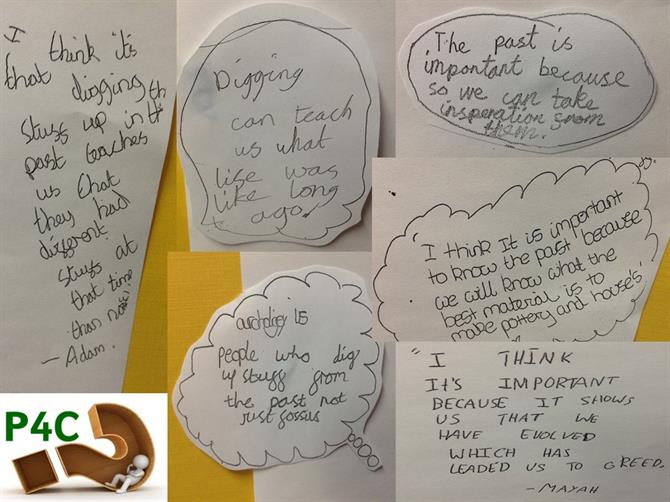 "I
think its
that digging th
stuff up in th
past teaches
us that
they had
different
stuff at
that time
than now!"
- Adam.
Digging
can teach
us what
life was
like long
ago.
The past is
important because
so we can take
insperation from
them.
'I think It is important
to know the past because
we will know what the
best material is to
make pottery and house's'
archolgey is
people who dig
up stuff from
the past not
just fossus
"I THINK
IT'S IMPORTANT
BECAUSE IT SHOWS
US THAT WE
HAVE EVOLVED
WHICH HAS
LEADED US TO GREED.
- MAYAH
P4C